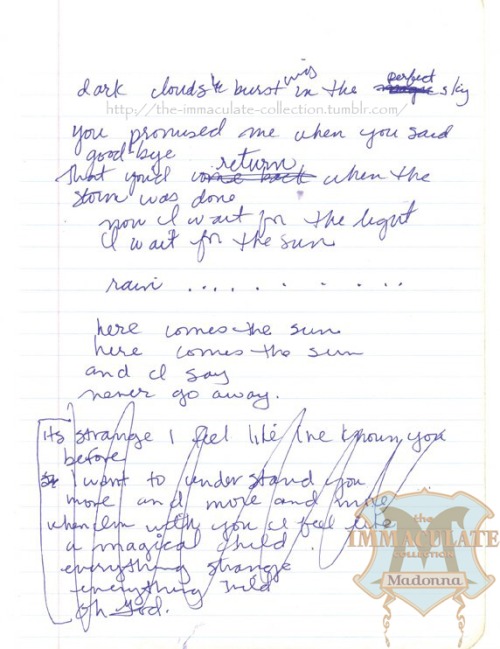 dark clouds burst ing in the perfect sky
http://the-immaculate-collection.tumblr.com/
you promised me when you said
goodbye
return
that you'd come back when the
storm was done
now I wait for the light
I wait for the sun
rain ..........
here comes the sun
here comes the sun
and I say
never go away.
its strange I feel like I've known you
before
I want to understand you
more and more and more
when I'm with you I feel like
a magical child
everything strange
everything wild
oh god.
the
IMMACULATE
COLLECTION
Madonna